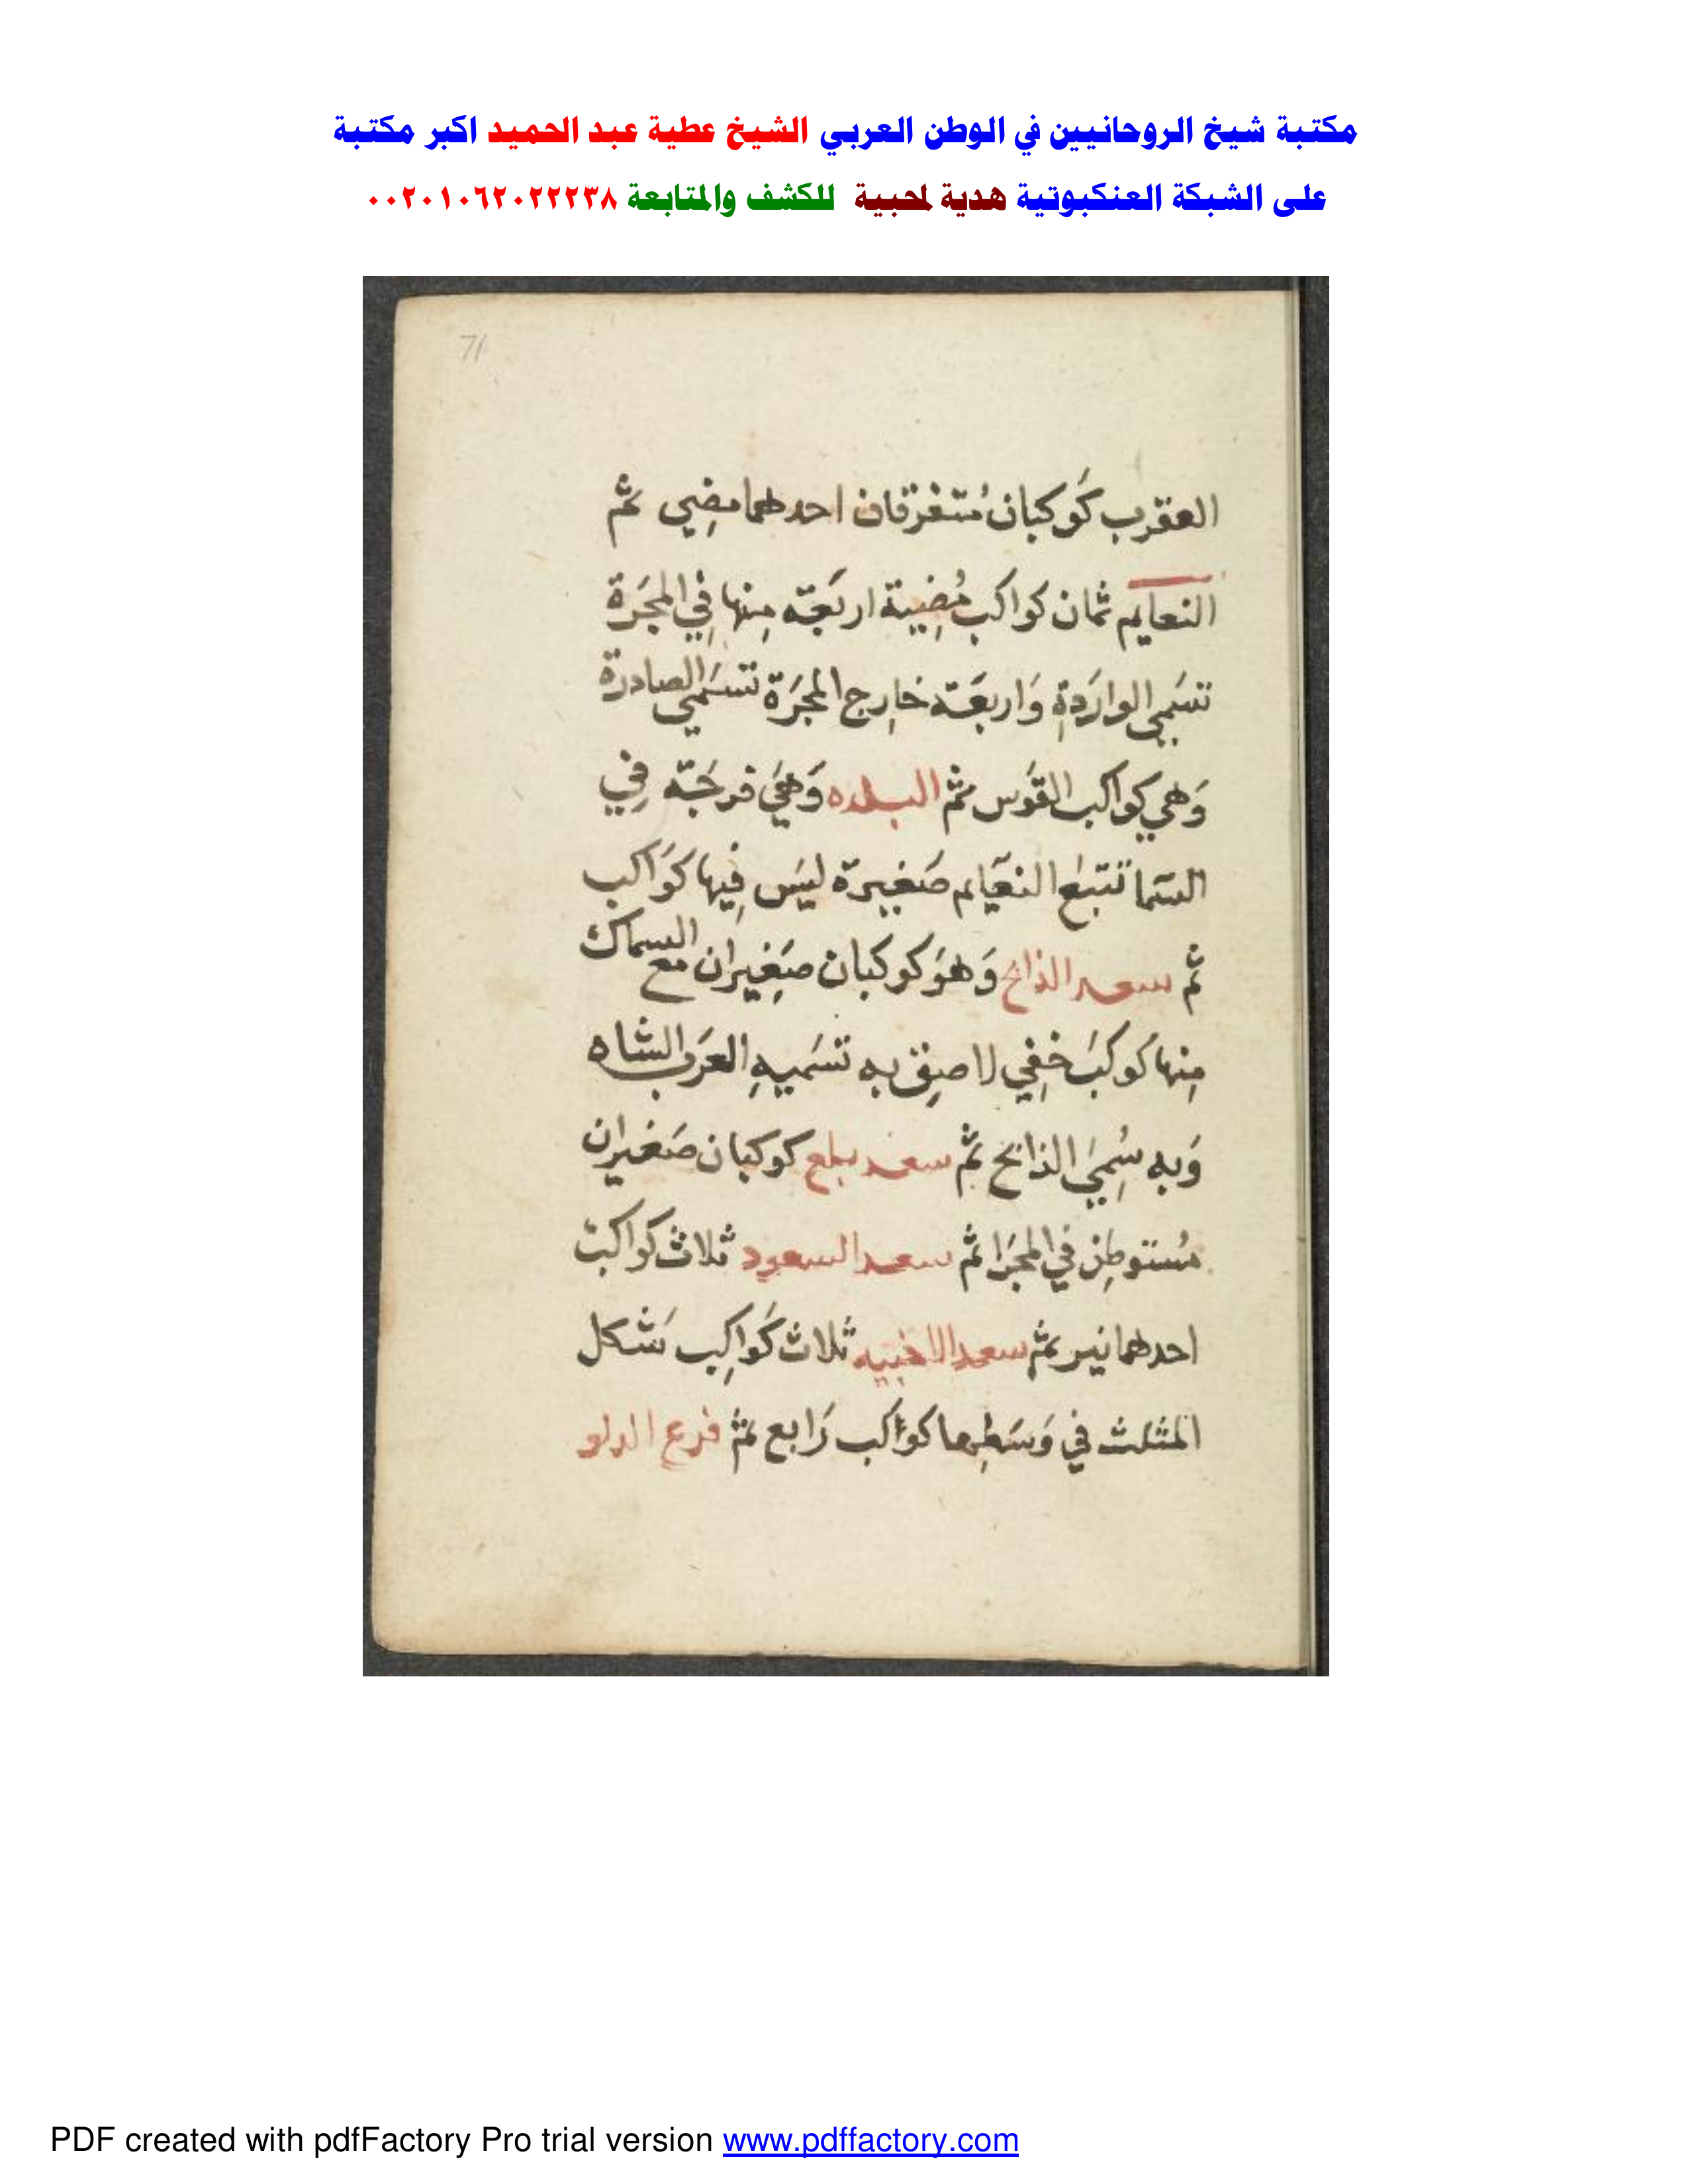 مكتبة شيخ الروحانيين في الوطن العربي الشيخ عطية عبد الحميد اكبر مكتبة
على الشبكة العنكبوتية هدية لمحبية للكشف والمتابعة ٠٠٢٠١٠٦٢٠٢٢٢٣٨
71
العقرب كَوكبان مُتفرقان احدهما مضِيي ثم
النعايم ثمان كواكب مُضِيية اربَعَة مِنها فِي المجَرَة
تسَمي الوارَدةِ وَاربعَة خارِج المجَرَة تسَمي الصادرة
وَهي كواكب القوَس ثم البلده وَهيَ فرجَة فِي
السَما تتبع النعَايم صَغيرة ليَس فِيها كوَاكب
ثم سعد الذابح وَهوَ كوكبان صَغِيران مع السماك
مِنها كوكبَ خَفِي لاصِق به تسَميهِ العرَب الشاه
وَبه سُمِيَ الذابح ثم سعد بلع كوكبان صَغيران
مُستوطِن في المجَرا ثم سعد السعود ثلاث كواكب
احدهما نير ثم سعد الاخبيه ثلاث كَواكِب شَكل
المثلث في وَسَطِها كواكب رَابع ثم فرع الدلو
PDF created with pdfFactory Pro trial version www.pdffactory.com